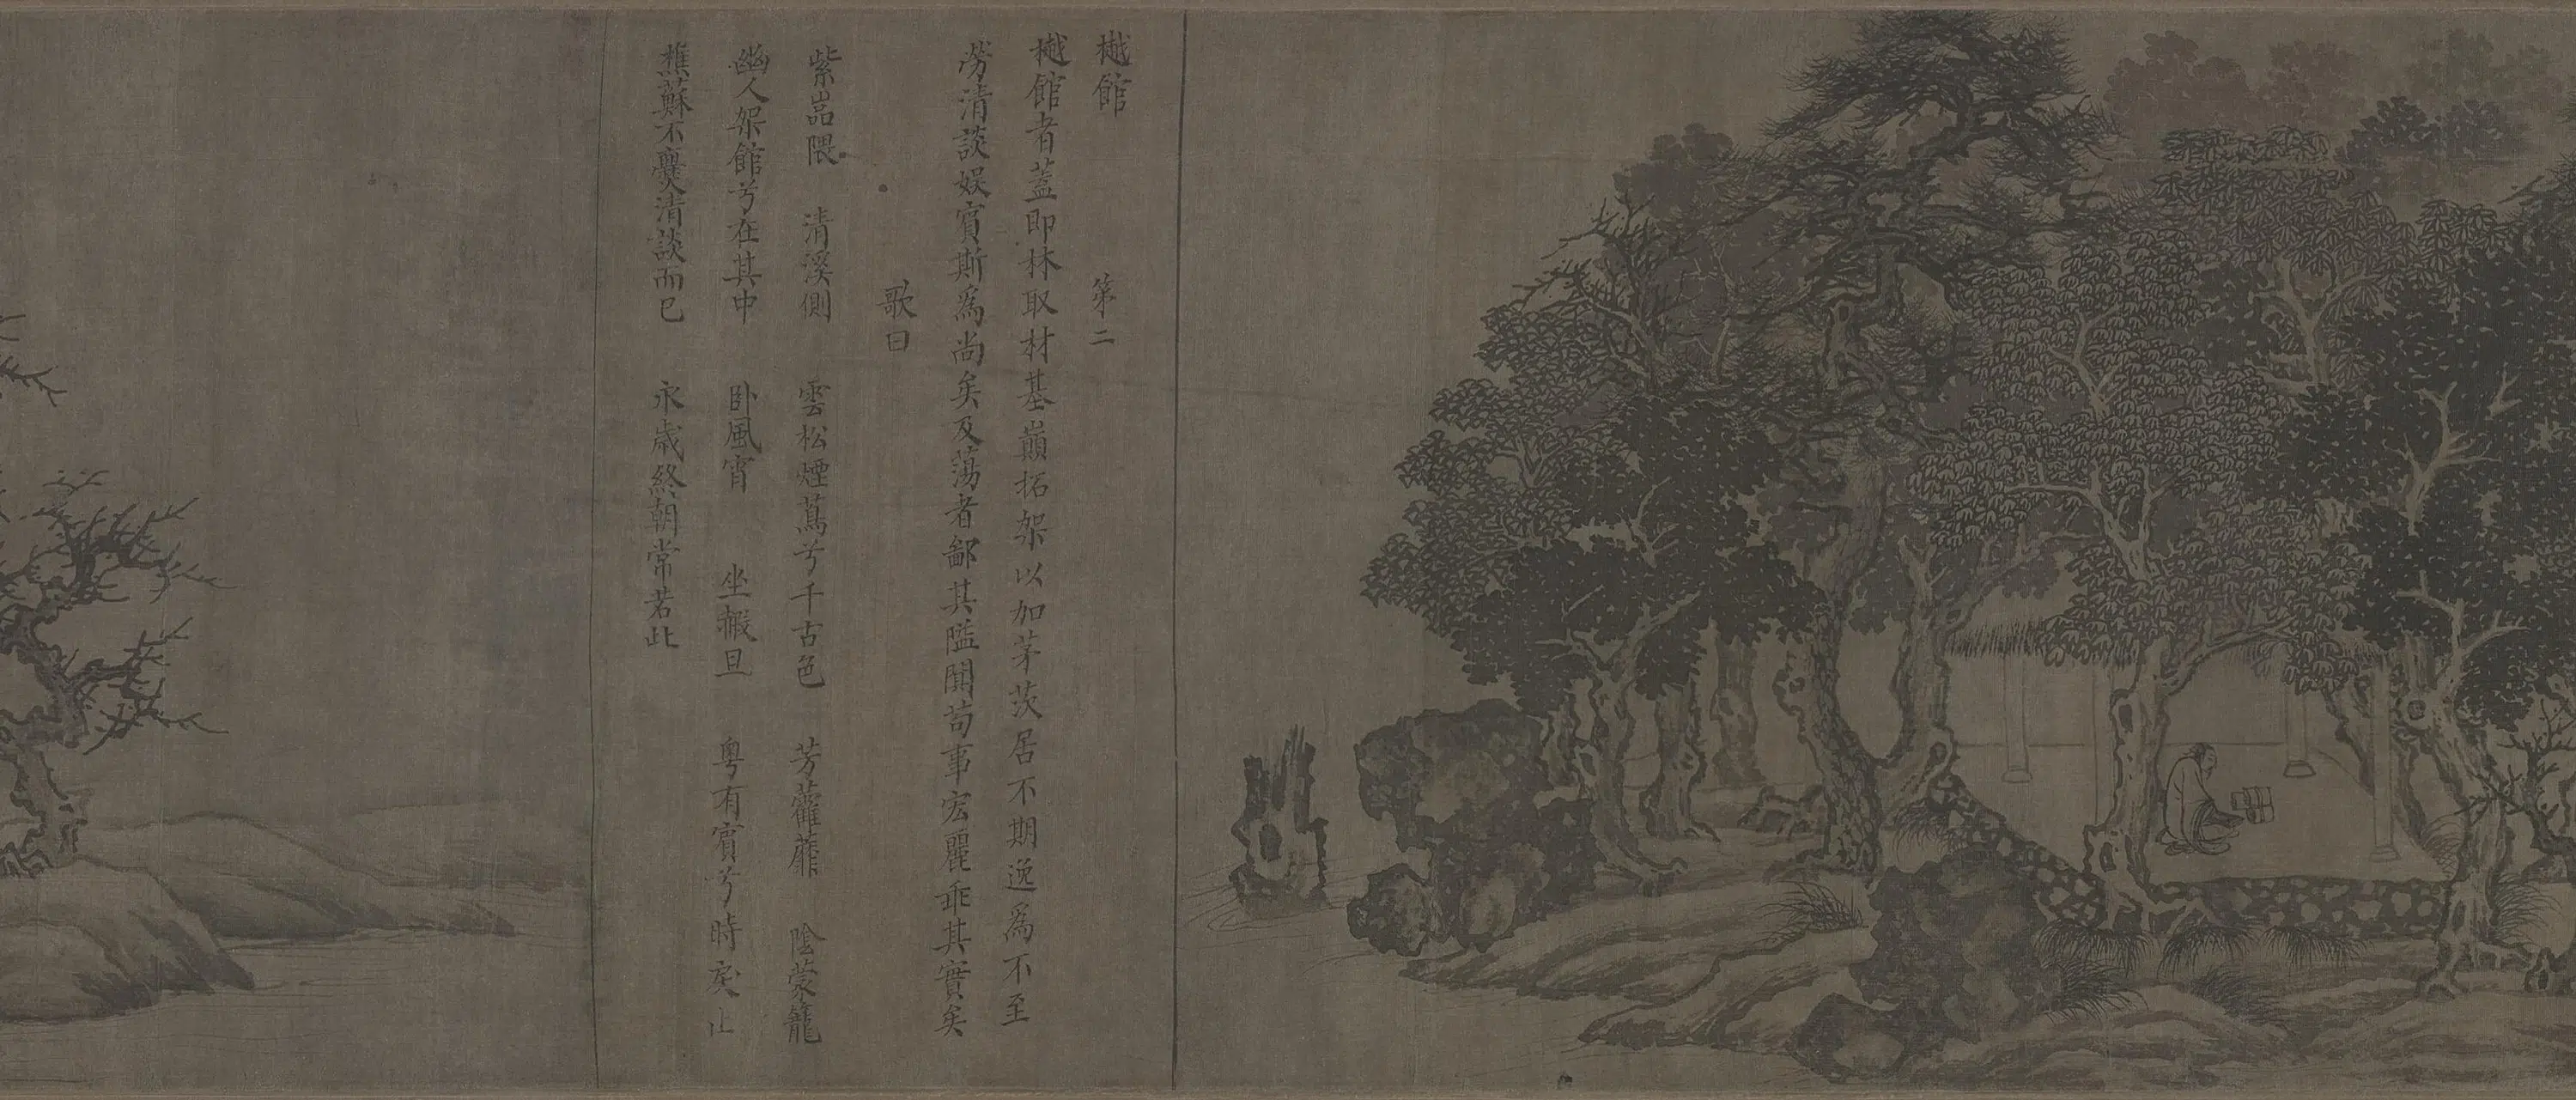 樾館 第二
樾館者蓋即林取材基巔拓架以加茅茨居不期逸為不至
勞清談娛賓斯為尚矣及蕩者鄙其隘閴苟事宏麗乖其實矣
歌曰
紫嵓隈 清溪側 雲松煙蔦兮千古色 芳藿蘼 陰蒙籠
幽人架館兮在其中 卧風宵 坐 旦 粵有賓兮時戾止
樵蘇不爨清談而已 永歲終朝常若此